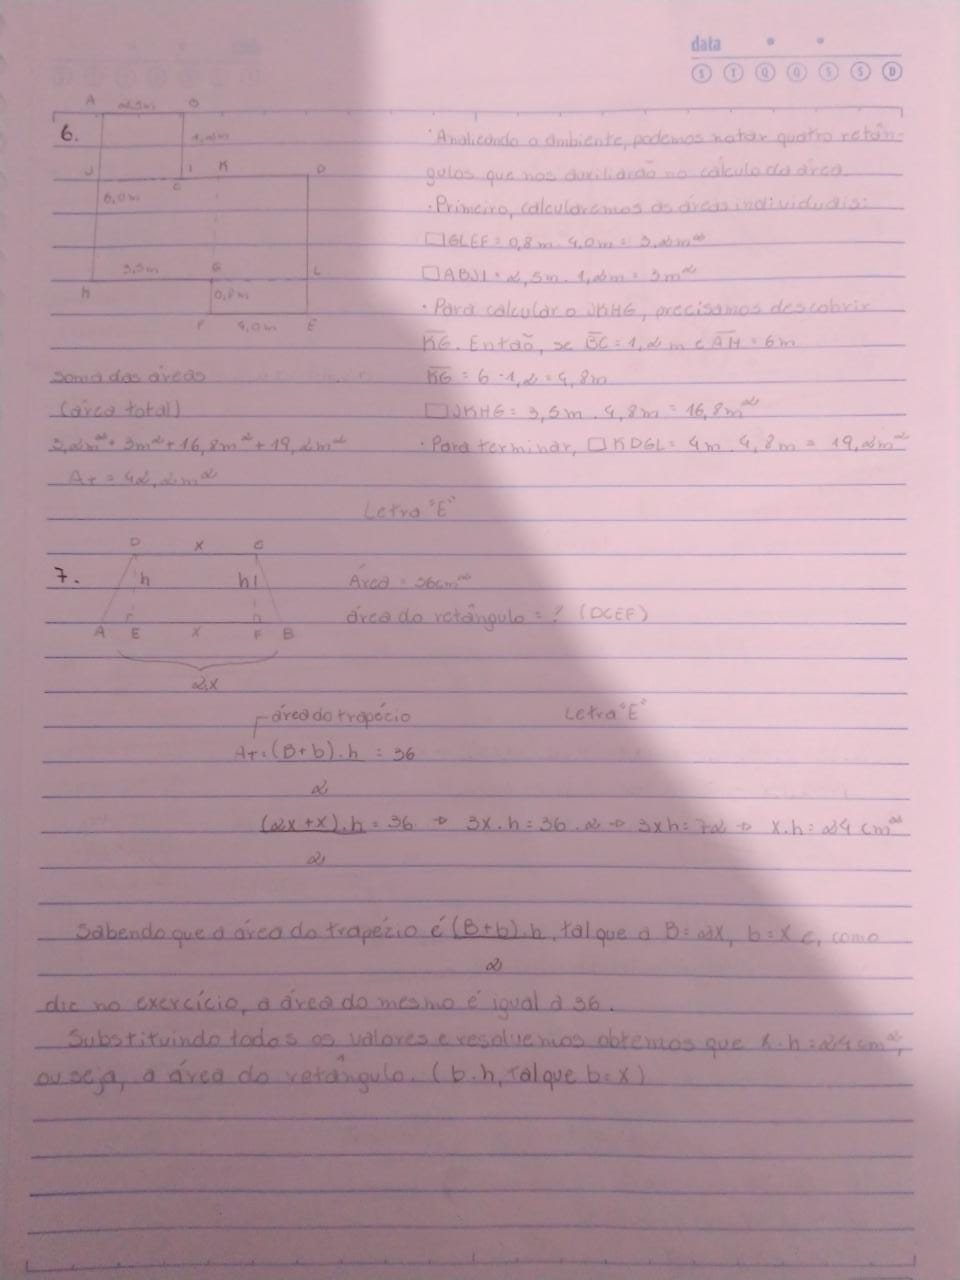 data
S T Q Q S S D
6.
A 2,5m B
1,2m
J I K D
C
6,0m
3,5m G L
H 0,8m
F 4,0m E
• Analisando o ambiente, podemos notar quatro retân-
gulos que nos auxiliarão no cálculo da área.
• Primeiro, calcularemos as áreas individuais:
□ GLEF = 0,8m . 4,0m = 3,2m²
□ ABJI = 2,5m . 1,2m = 3m²
• Para calcular o JKHG, precisamos descobrir
KG. Então, se BC = 1,2m e AH = 6m
KG = 6 - 1,2 = 4,8m
□ JKHG = 3,5m . 4,8m = 16,8m²
• Para terminar, □ KDGL = 4m . 4,8m = 19,2m²
soma das áreas
(área total)
3,2m² + 3m² + 16,8m² + 19,2m²
AT = 42,2m²
Letra "E"
7.
D x C
h h
A E x F B
2x
Área = 36cm²
área do retângulo = ? (DCEF)
área do trapézio
Letra "E"
AT = (B+b).h = 36
2
(2x+x).h = 36 ⇒ 3x.h = 36.2 ⇒ 3xh = 72 ⇒ x.h = 24 cm²
2
Sabendo que a área do trapézio é (B+b).h, tal que a B = 2x, b = x e, como
2
diz no exercício, a área do mesmo é igual a 36.
Substituindo todos os valores e resolvemos obtemos que x.h = 24cm²,
ou seja, a área do retângulo. (b.h, tal que b=x)